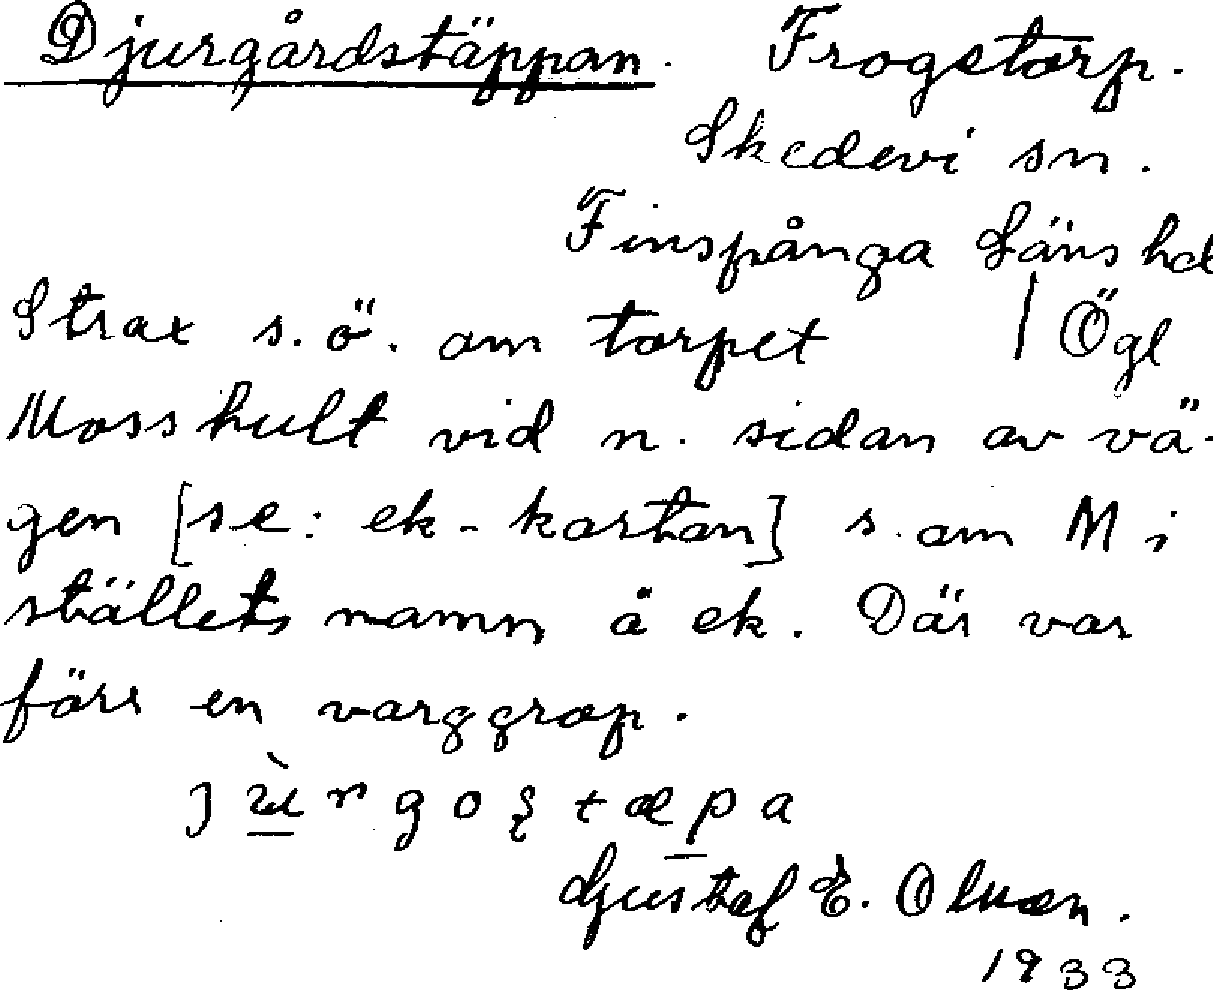 Djurgårdstäppan. Frogstorp.
Skedevi sn.
Finspånga Läns hd
Strax s.ö. om torpet | Ögl
Mosshult vid n. sidan av vä-
gen [se: ek-kartan] s. om M i
ställets namn å ek. Där var
förr en varggrop.
Gustaf E. Olsson.
1933